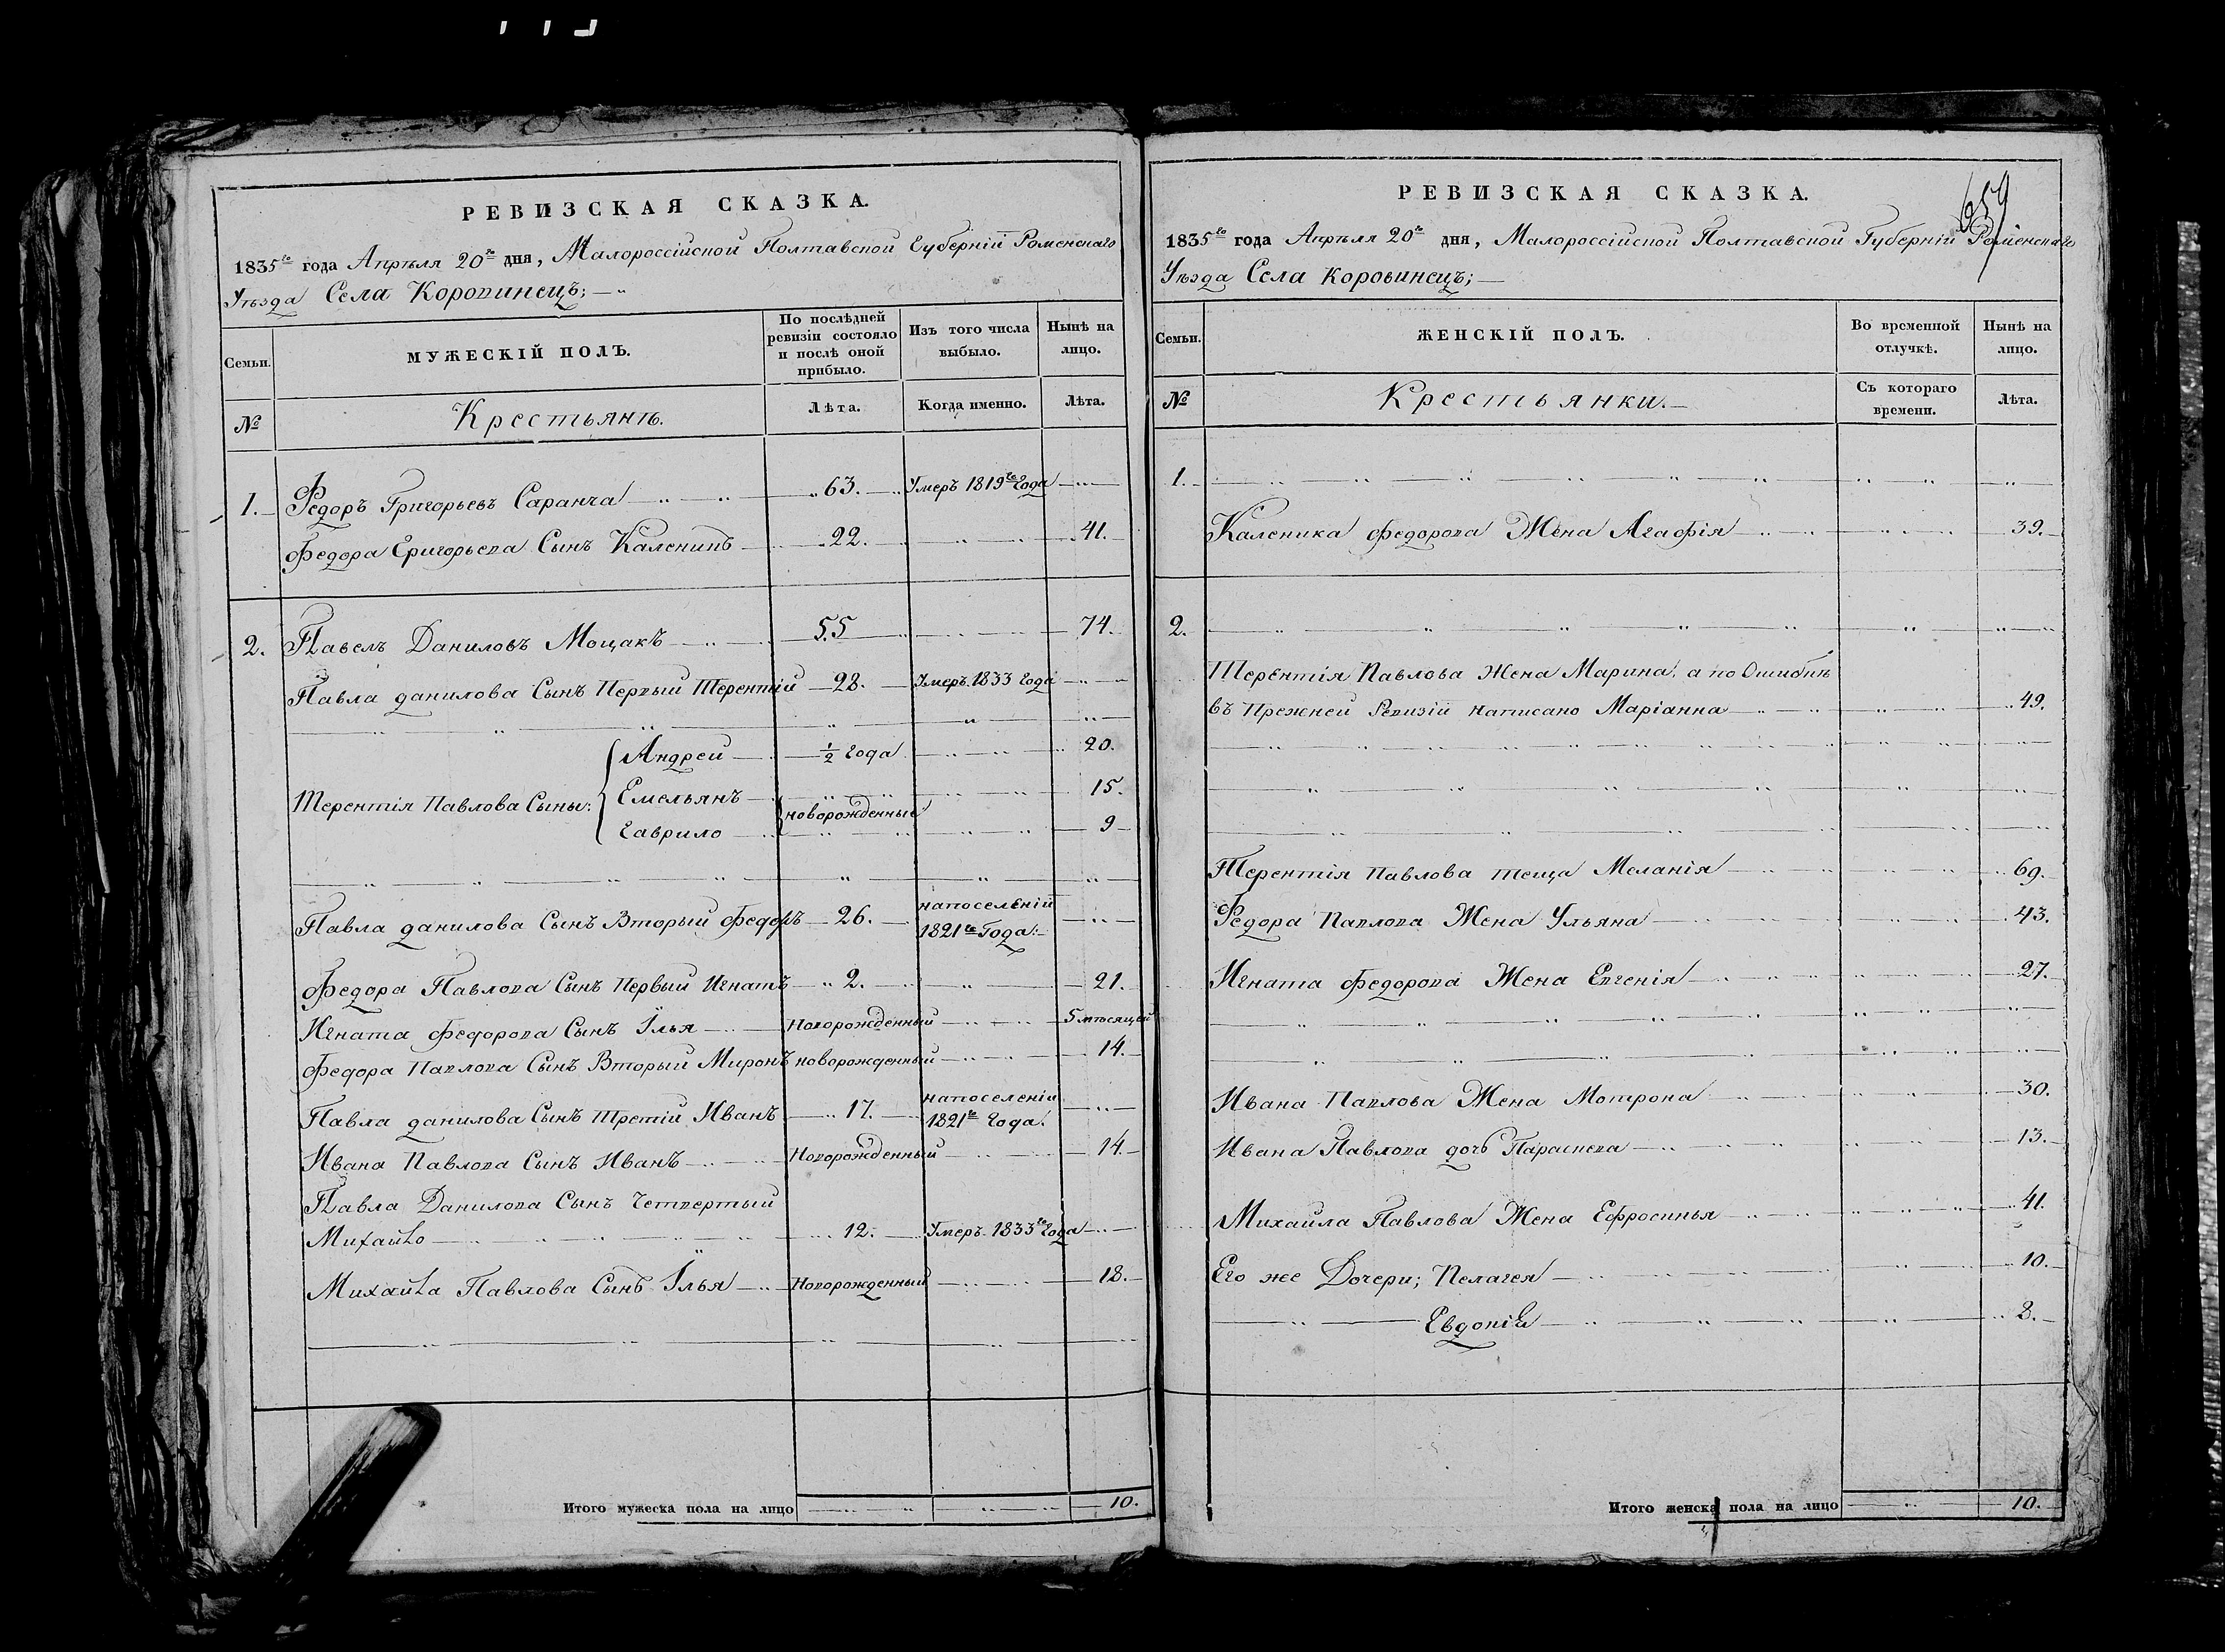 РЕВИЗСКАЯ СКАЗКА.
1835го года Апрѣля 20го дня, Малороссійской Полтавской Губерніи Роменскаго
Уѣзда Села Коровинецъ;
Семьи. МУЖЕСКІЙ ПОЛЪ. По послѣдней ревизіи состояло и послѣ оной прибыло. Изъ того числа выбыло. Нынѣ на лицо.
№ Крестьянѣ. Лѣта. Когда именно. Лѣта.
1. Федоръ Григорьевъ Саранча 63. Умеръ 1819го Года
Федора Григорьева Сынъ Каленикъ 22. 41.
2. Павелъ Даниловъ Мощакъ 55 74.
Павла данилова Сынъ Первый Терентій 28. Умеръ 1833 Года
Андрей 1/2 Года 20.
Терентія Павлова Сыны: Емельянъ 15.
новорожденные
Гаврило 9
Павла данилова Сынъ Вторый Федоръ 26. напоселеніи 1821го Года:
Федора Павлова Сынъ Первый Игнатъ 2. 21.
Игната Федорова Сынъ Илья Новорожденный 5 мѣсяцей
Федора Павлова Сынъ Вторый Миронъ новорожденный 14.
Павла данилова Сынъ Третій Иванъ 17. напоселеніи 1821го Года.
Ивана Павлова Сынъ Иванъ Новорожденный 14.
Павла Данилова Сынъ Четвертый
Михайло 12. Умеръ 1833го Года
Михайла Павлова Сынъ Илья Новорожденный 18.
Итого мужеска пола на лицо 10.
659
РЕВИЗСКАЯ СКАЗКА.
1835го года Апрѣля 20го дня, Малороссійской Полтавской Губерніи Роменскаго
Уѣзда Села Коровинецъ;
Семьи. ЖЕНСКІЙ ПОЛЪ. Во временной отлучкѣ. Нынѣ на лицо.
№ Крестьянки. Съ котораго времени. Лѣта.
1.
Каленика Федорова Жена Агафія 39.
2.
Терентія Павлова Жена Марина, а по Ошибкѣ
въ Прежней Ревизіи написано Маріанна 49.
Терентія Павлова теща Меланія 69.
Федора Павлова Жена Ульяна 43.
Игната Федорова Жена Евгенія 27.
Ивана Павлова Жена Мотрона 30.
Ивана Павлова дочь Параскева 13.
Михайла Павлова Жена Ефросинья 41.
Его же Дочери; Пелагея 10.
Евдокія 8.
Итого женска пола на лицо 10.